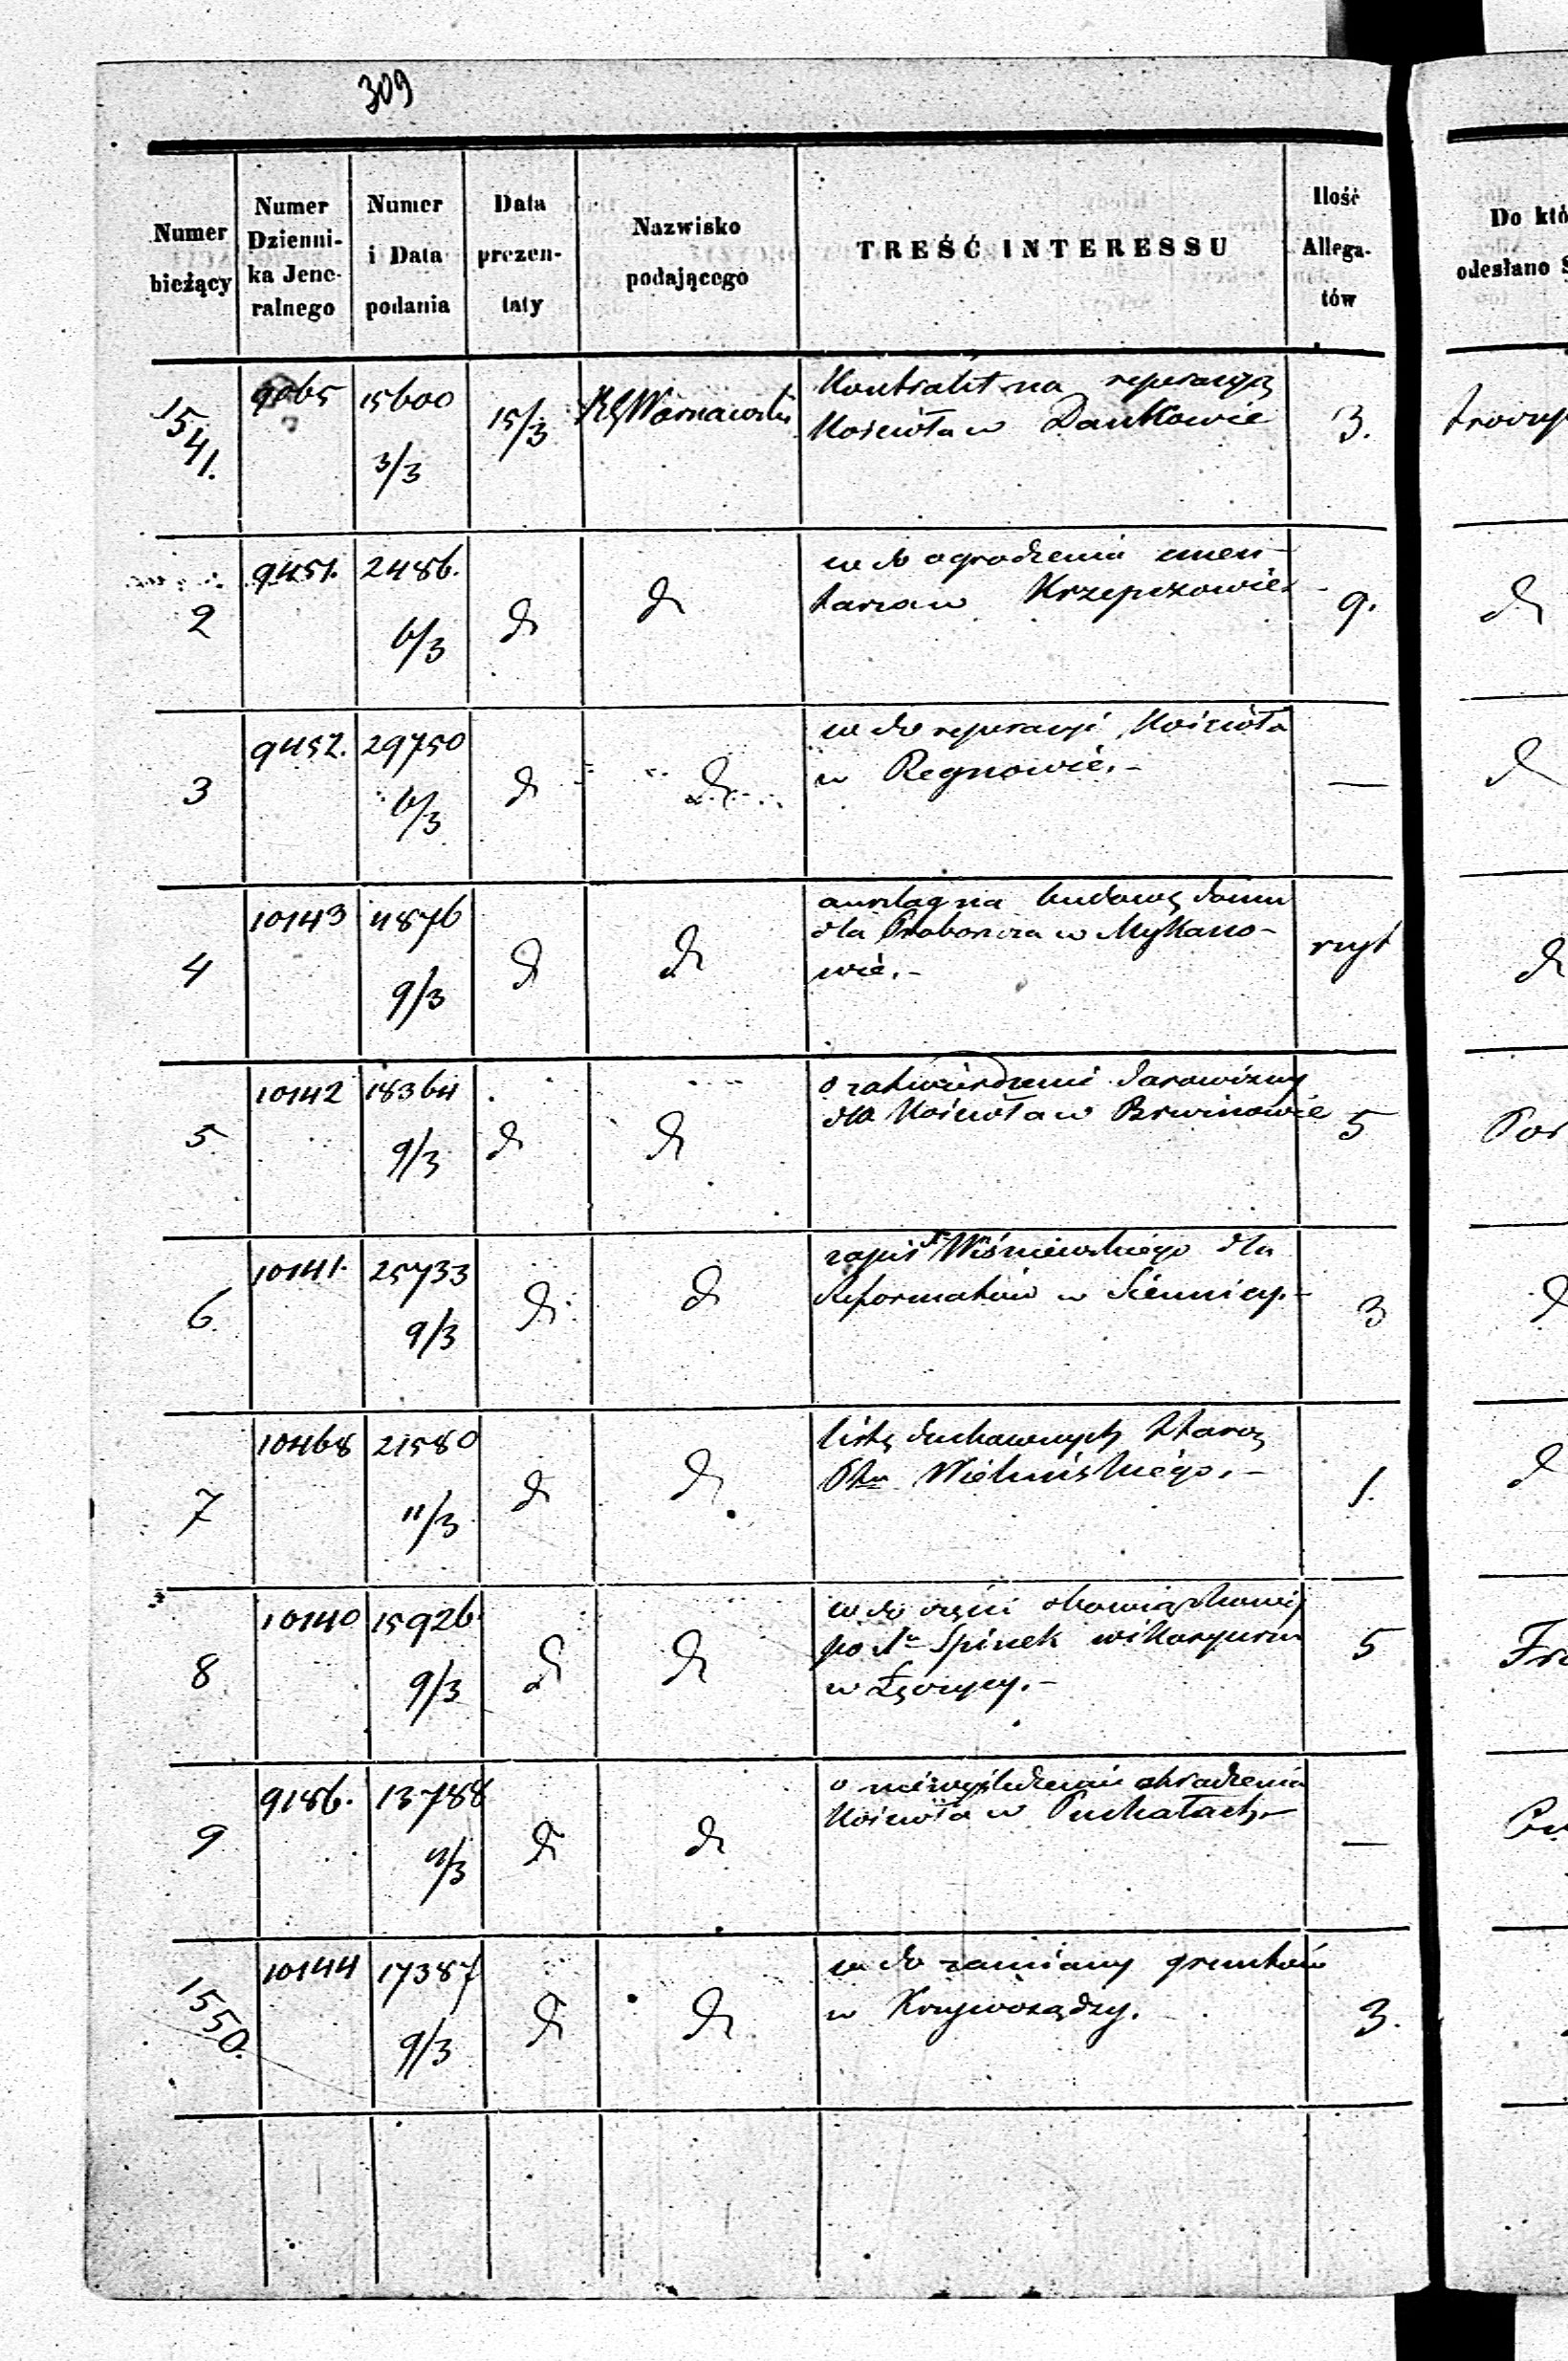 309
Numer bieżący | Numer Dziennika Jeneralnego | Numer i Data podania | Data prezentaty | Nazwisko podającego | TREŚĆ INTERESSU | Ilość Allegatów | Do któ
odesłano S
1541. | 9065 | 15600 3/3 | 15/3 | Warnawski | Kontrakt na reperacyą
Kościoła w Dankowie | 3.
2 | 9451. | 2486. 6/3 | d | d | w do ogrodzenia cmen-
tarza w Krzepczowie | 9. | d
3 | 9452. | 29750 6/3 | d | d | w do reperacyi Kościoła
w Regnowie.- | — | d
4 | 10143 | 4876 9/3 | d | d | anszlag na budowę domu
dla Proboszcza w Mykano-
wie.- | szyt | d
5 | 10142 | 18364 9/3 | d | d | o zatwierdzenie darowizny
dla Kościoła w Brwinowie | 5
6. | 10141. | 25733 9/3 | d | d | zapis Wiśniewskiego dla
Reformatów w Siennicy.- | 3 | d
7 | 10468 | 21580 11/3 | d | d | listę duchownych
Wieluńskiego.- | 1. | d
8 | 10140 | 15926 9/3 | d | d | w do części obowiązkowej
po Spinek wikaryuszu
w Łęczycy.- | 5
9 | 9186. | 13788 4/3 | d | d | o niewyśledzeniu okradzenia
Kościoła w Puchałach.- | —
1550. | 10144 | 17387 9/3 | d | d | w do zamiany gruntów
w Krzyworządzy. | 3.